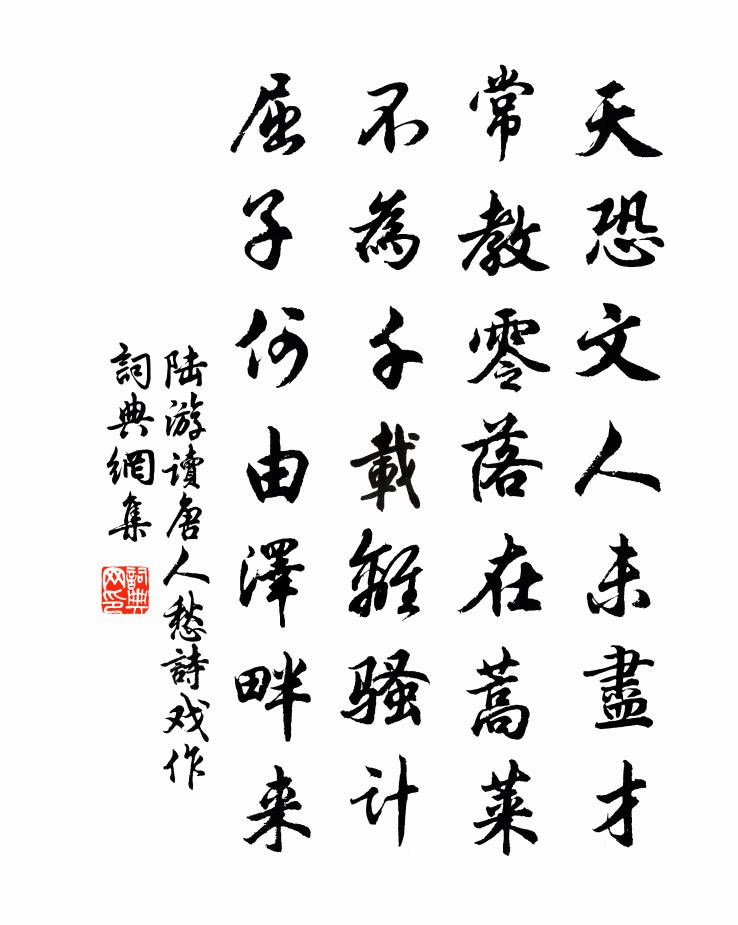 天恐文人未盡才
常教零落在蒿萊
不為千載離騷计
屈子何由澤畔来
陆游讀唐人愁詩戏作
詞典網集
詞典
网印